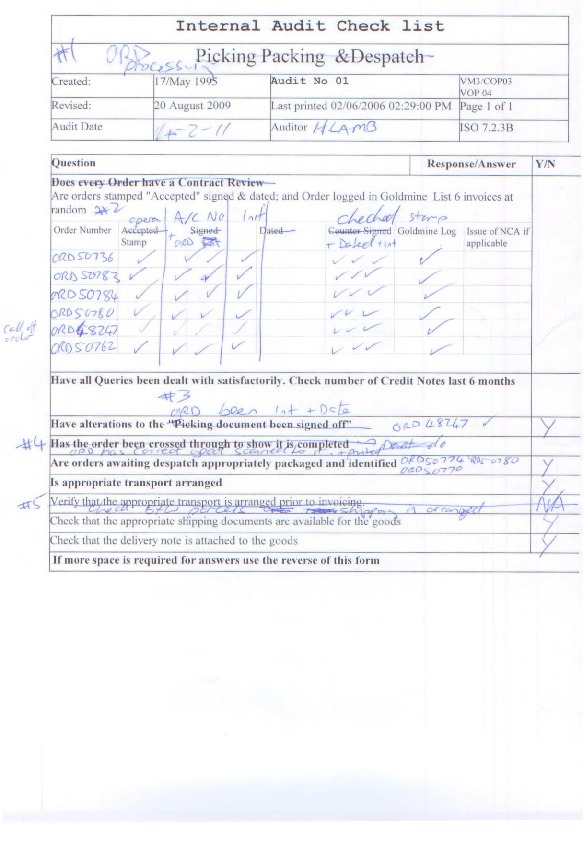 Internal Audit Check list
#1 ORD processing
Picking Packing &Despatch
Created: 17/May 1995 Audit No 01 VM3/COP03
VOP 04
Revised: 20 August 2009 Last printed 02/06/2006 02:29:00 PM Page 1 of 1
Audit Date 14-2-11 Auditor HLAMB ISO 7.2.3B
Question Response/Answer Y/N
Does every Order have a Contract Review
Are orders stamped "Accepted" signed & dated; and Order logged in Goldmine List 6 invoices at
random #2
opera A/C No Init checked stamp
Order Number Accepted Signed Dated Counter Signed Goldmine Log Issue of NCA if
Stamp + ORD + Dated + Int applicable
ORD 50736 ✓ ✓ ✓ ✓ ✓ ✓ ✓ ✓
ORD 50783 ✓ ✓ ✓ ✓ ✓ ✓ ✓ ✓
ORD 50784 ✓ ✓ ✓ ✓ ✓ ✓ ✓ ✓
ORD 50780 ✓ ✓ ✓ ✓ ✓ ✓ ✓ ✓
Call off order ORD 48247 ✓ ✓ ✓ ✓ ✓ ✓ ✓ ✓
ORD 50762 ✓ ✓ ✓ ✓ ✓ ✓ ✓ ✓
Have all Queries been dealt with satisfactorily. Check number of Credit Notes last 6 months
#3
ORD been Int + Date
Have alterations to the "Picking document been signed off" ORD 48247 ✓ Y
#4 Has the order been crossed through to show it is completed → Dont do
ORD has correct scanned to it
Are orders awaiting despatch appropriately packaged and identified ORD 50774 50780 Y
ORD 50770
Is appropriate transport arranged Y
#5 Verify that the appropriate transport is arranged prior to invoicing. N/A
Check parcels shipping is arranged
Check that the appropriate shipping documents are available for the goods Y
Check that the delivery note is attached to the goods Y
If more space is required for answers use the reverse of this form